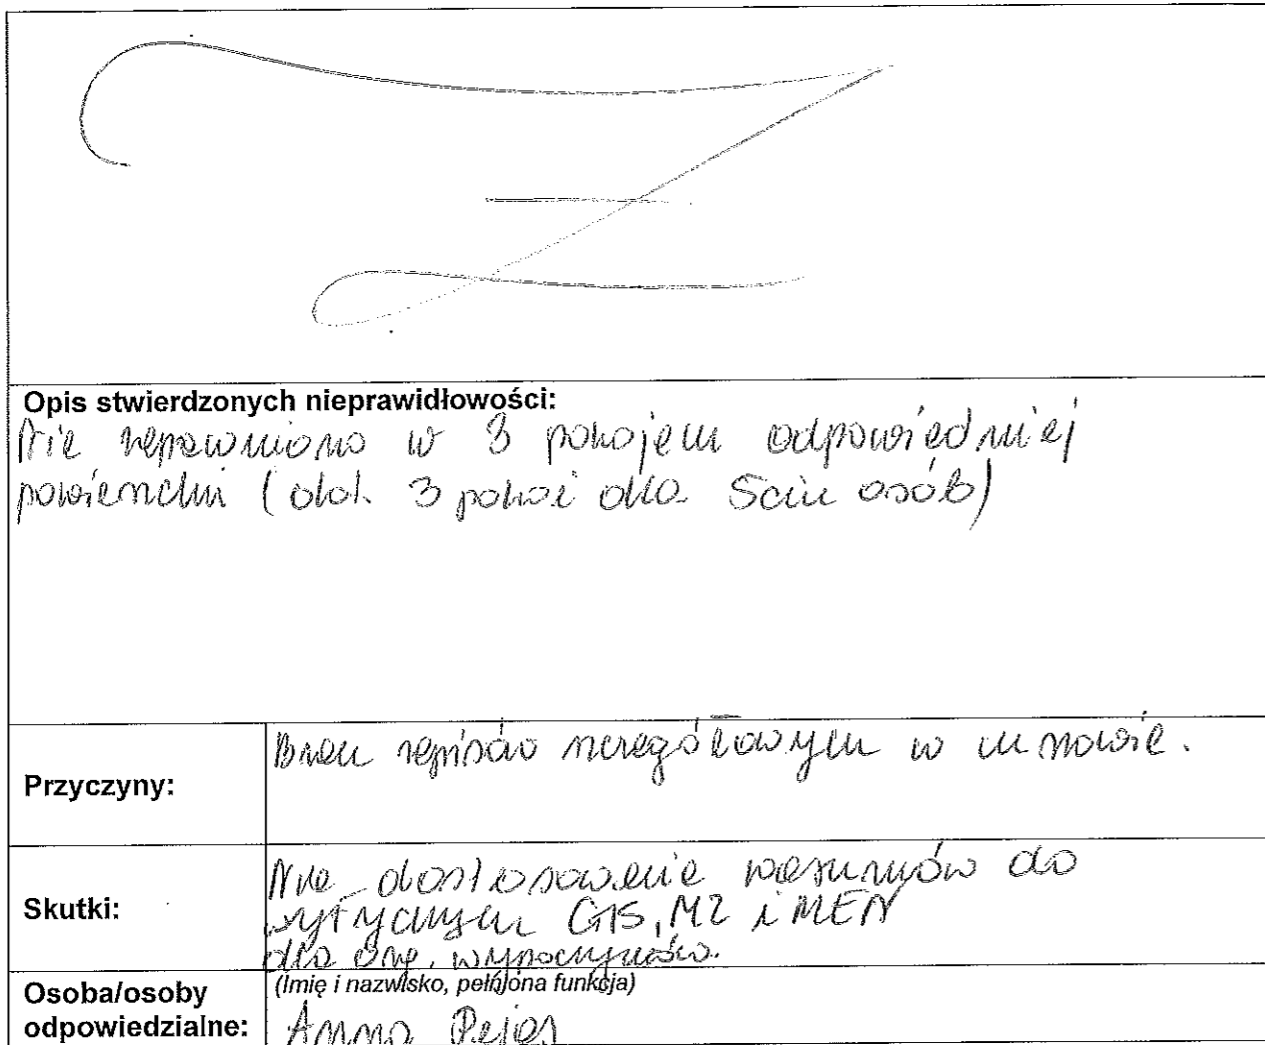 Opis stwierdzonych nieprawidłowości:
Nie zapewniono w 3 pokojach odpowiedniej
powierzchni (dot. 3 pokoi dla 5ciu osób)
Przyczyny:
Brak zapisów szczegółowych w umowie.
Skutki:
Nie dostosowanie warunków do
wytycznych GIS, MZ i MEN
dla org. wypoczynków.
Osoba/osoby
odpowiedzialne:
(Imię i nazwisko, pełniona funkcja)
Anna